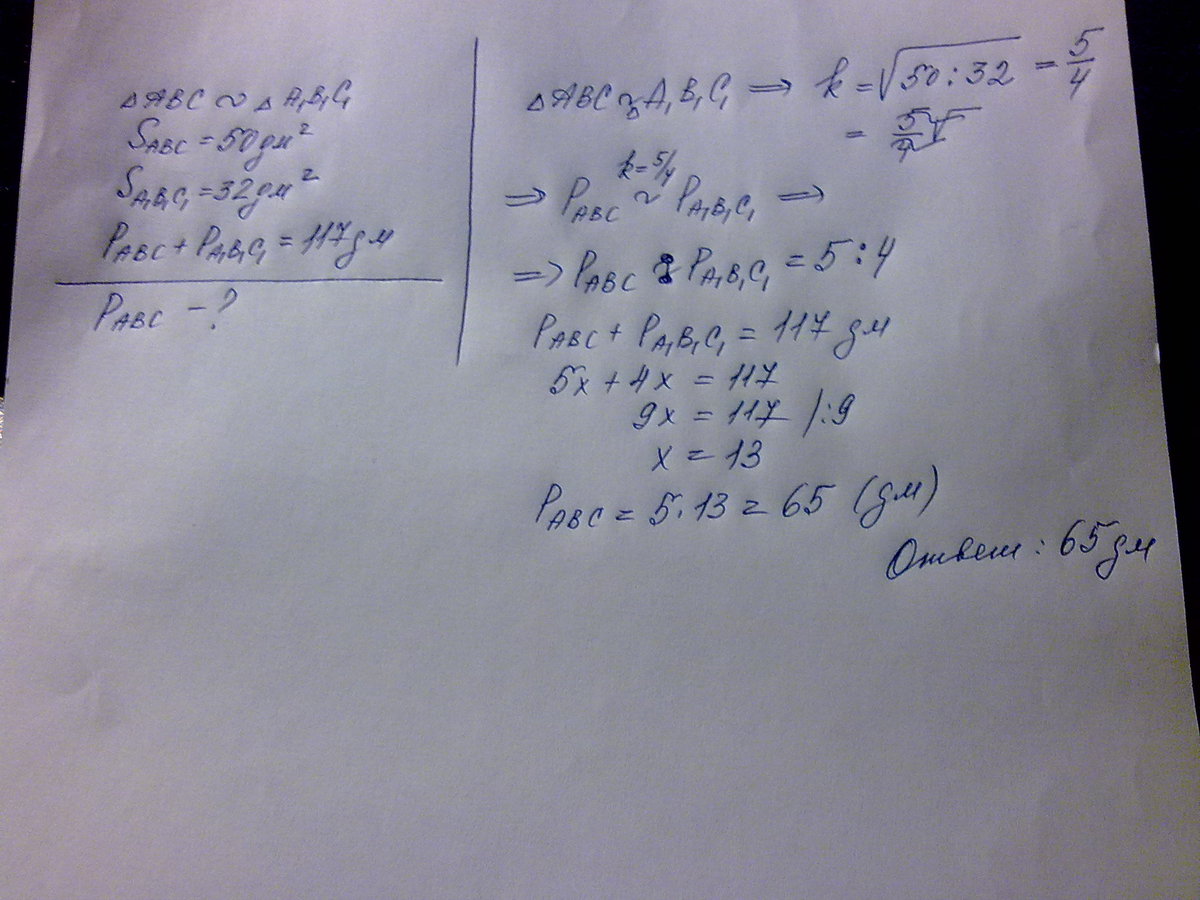 △ABC ~ △A₁B₁C₁
S_ABC = 50 дм²
S_A₁B₁C₁ = 32 дм²
P_ABC + P_A₁B₁C₁ = 117 дм
P_ABC - ?
△ABC ~ A₁B₁C₁ ⇒ k = √50:32 = 5/4
= 5/4
k = 5/4
⇒ P_ABC ~ P_A₁B₁C₁ ⇒
⇒ P_ABC : P_A₁B₁C₁ = 5 : 4
P_ABC + P_A₁B₁C₁ = 117 дм
5x + 4x = 117
9x = 117 /:9
x = 13
P_ABC = 5 · 13 = 65 (дм)
Ответ : 65 дм